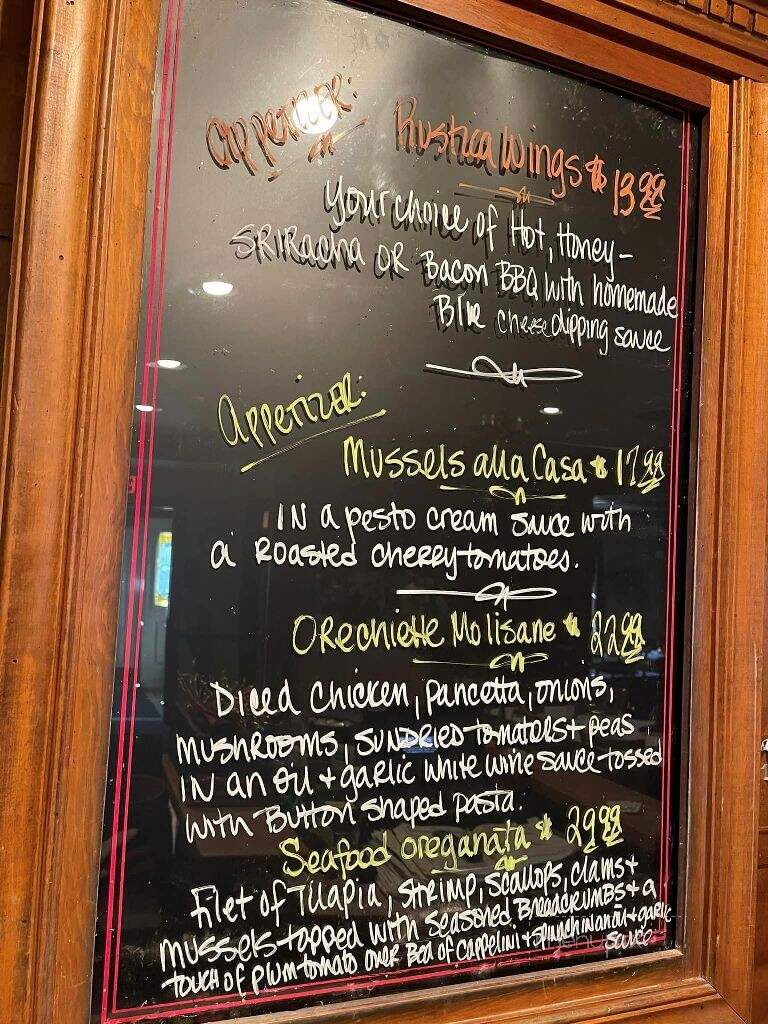 Appetizer:
Rustica Wings $13.99
Your choice of Hot, Honey-
SRIRacha OR Bacon BBQ with homemade
Blue cheese dipping sauce
Appetizer:
Mussels alla Casa $17.99
IN a pesto cream sauce with
a Roasted cherry tomatoes.
ORechiette Molisane $22.99
Diced Chicken, pancetta, onions,
mushrooms, SUNDRIED tomatoes + peas
IN an oil + garlic white wine sauce tossed
with Button shaped pasta.
Seafood oreganata $29.99
Filet of Tilapia, shrimp, scallops, clams +
mussels topped with seasoned BReadcRumbs + a
touch of plum tomato over Bed of cappelini + spinach in an oil + garlic
sauce